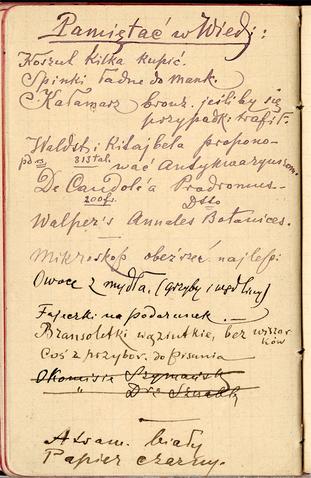 Pamiętać w Wiedj:
Koszul kilka kupić.
Spinki ładne do mank.
C. Kałamarz bronz. jeśliby się
przypadk. trafił.
Waldst. i Kitajbela propono-
313 tal. wać Antykwaryuszom.
De Candol'a Prodromus-
200 fr.
Walper's Annales Botanices.
Mikroskop obejrzeć najlepi
Owoce z mydła. (grzyby i wędliny)
Fajeczki na podarunek. —
Bransoletki wąziutkie, bez wisior
ków
Coś z przybor. do pisania
Okomisia Szymańsk
" Dra
Atram. biały
Papier czarny.